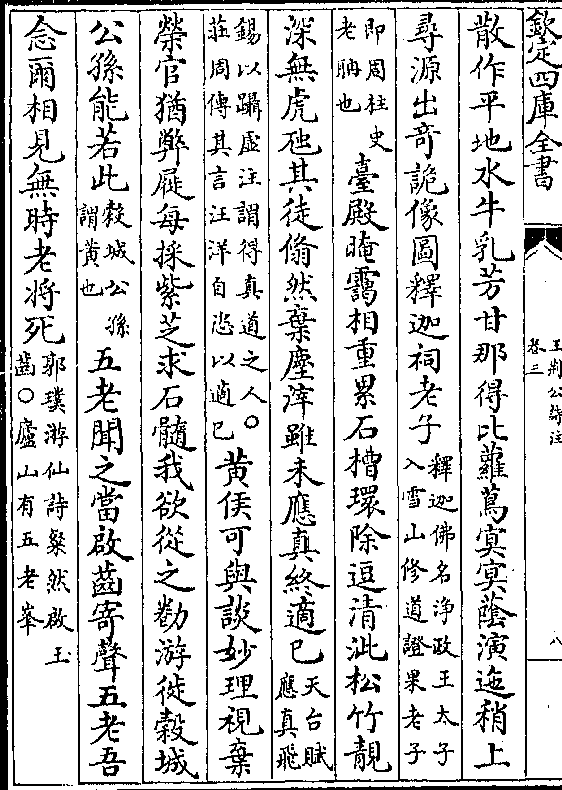 欽定四庫全書
王荆公詩注
卷三
八
散作平地水牛乳芳甘那得比蘿蔦㝠㝠蔭演迤稍上
尋源出竒詭像圖釋迦祠老子
釋迦佛名浄政王太子
入雪山修道證果老子
即周柱史
老聃也
臺殿晻靄相重累石槽環除逗清泚松竹靚
深無虎虺其徒翛然棄塵滓雖未應真終適已
天台賦
應真飛
錫以躡虚注謂得真道之人○
莊周傳其言汪洋自恣以適已
黄侯可與談妙理視棄
榮官猶弊屣每採紫芝求石髓我欲從之勸游徙榖城
公孫能若此
榖城公孫
謂黄也
五老聞之當啟齒寄聲五老吾
念爾相見無時老將死
郭璞游仙詩粲然啟玉
齒○廬山有五老峯